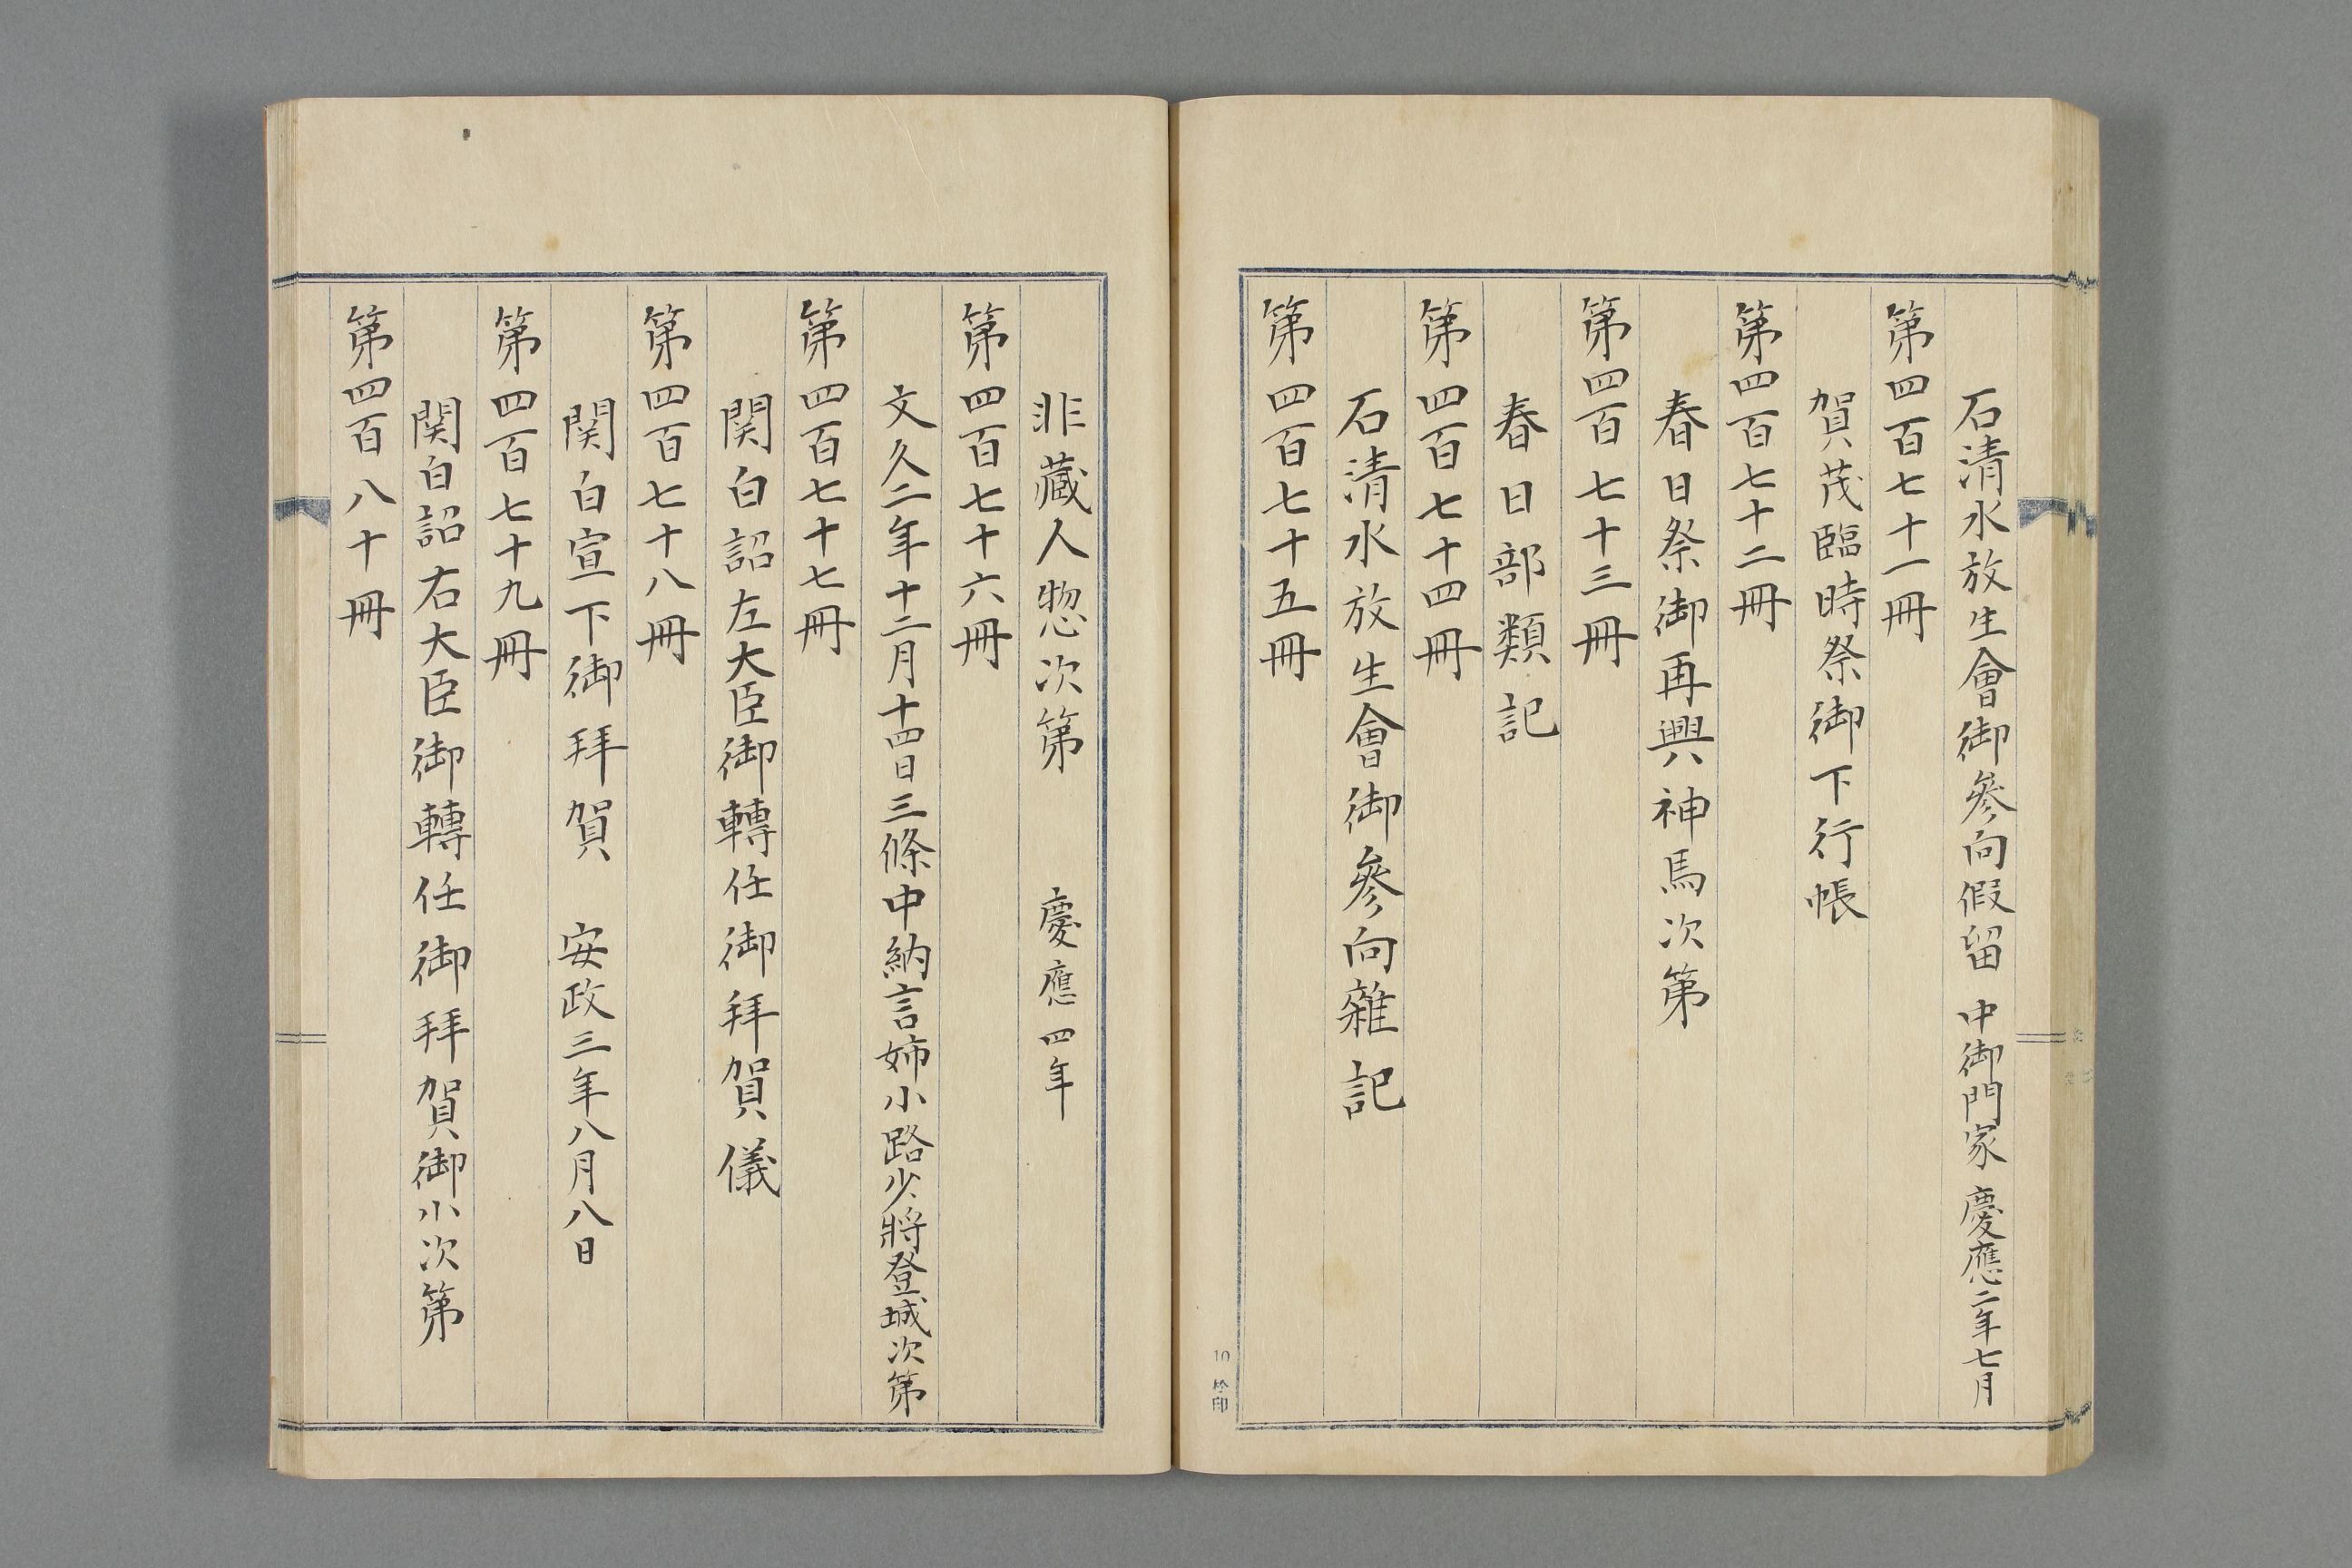 石清水放生會御參向假留　中御門家　慶應二年七月
第四百七十一冊
賀茂臨時祭御下行帳
第四百七十二冊
春日祭御再興神馬次第
第四百七十三冊
春日部類記
第四百七十四冊
石清水放生會御參向雜記
第四百七十五冊
非藏人惣次第　慶應四年
第四百七十六冊
文久二年十二月十四日三條中納言姉小路少將登城次第
第四百七十七冊
関白詔左大臣御轉任御拜賀儀
第四百七十八冊
関白宣下御拜賀　安政三年八月八日
第四百七十九冊
関白詔右大臣御轉任御拜賀御小次第
第四百八十冊